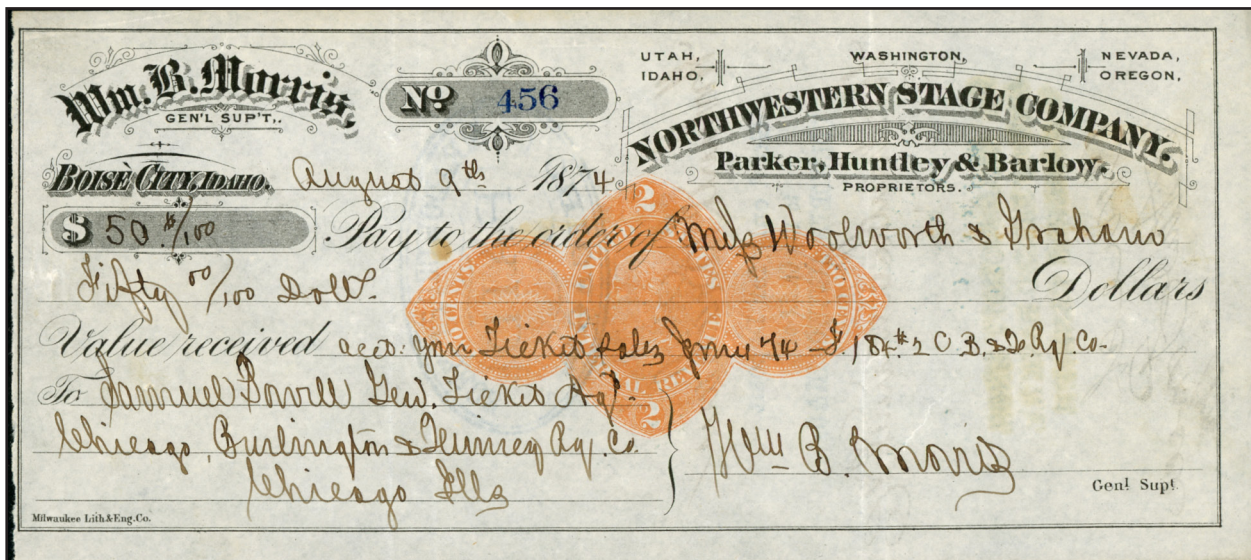 Wm. B. Morris,
GEN'L SUP'T,.
No 456
UTAH, WASHINGTON, NEVADA,
IDAHO, OREGON,
NORTHWESTERN STAGE COMPANY.
Parker, Huntley & Barlow.
PROPRIETORS.
BOISÉ CITY, IDAHO. August 9th 1874
$ 50 #/100 Pay to the order of Mess Woolworth & Graham
Fifty 00/100 Dolls. Dollars
Value received acct. Ticket Sales 74 C. B. & Q. Ry. Co.
To Samuel Powell Gen. Ticket Agt.
Chicago, Burlington & Quincy Ry. Co.
Chicago Ills
Wm B. Morris
Genl. Supt.
UNITED STATES
INTERNAL REVENUE
TWO CENTS
TWO CENTS
2
2
Milwaukee Lith & Eng. Co.